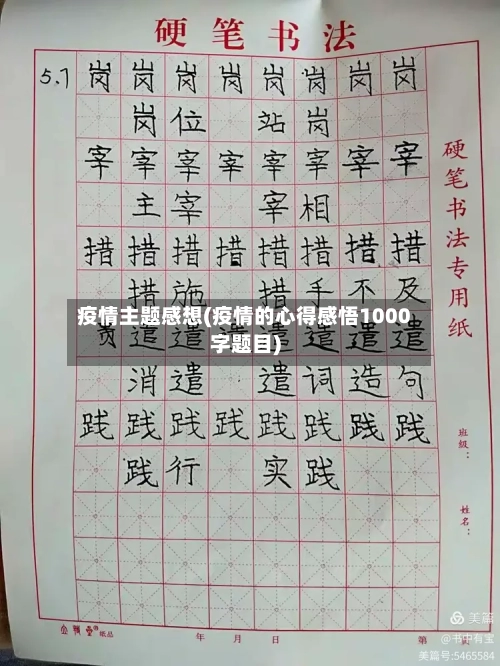 硬笔书法
5.7 岗岗岗岗岗岗岗岗
岗位 站岗
宰宰宰宰宰宰宰宰
主宰 宰相
措措措措措措措措
措施 措手不及
疫情主题感想(疫情的心得感悟1000
字题目)
消遣 遣词造句
践践践践践践践践
践行 实践
硬笔书法专用纸
班级：
姓名：
年 月 日 第
纸品
美篇
@书中有宝
美篇号:5465584